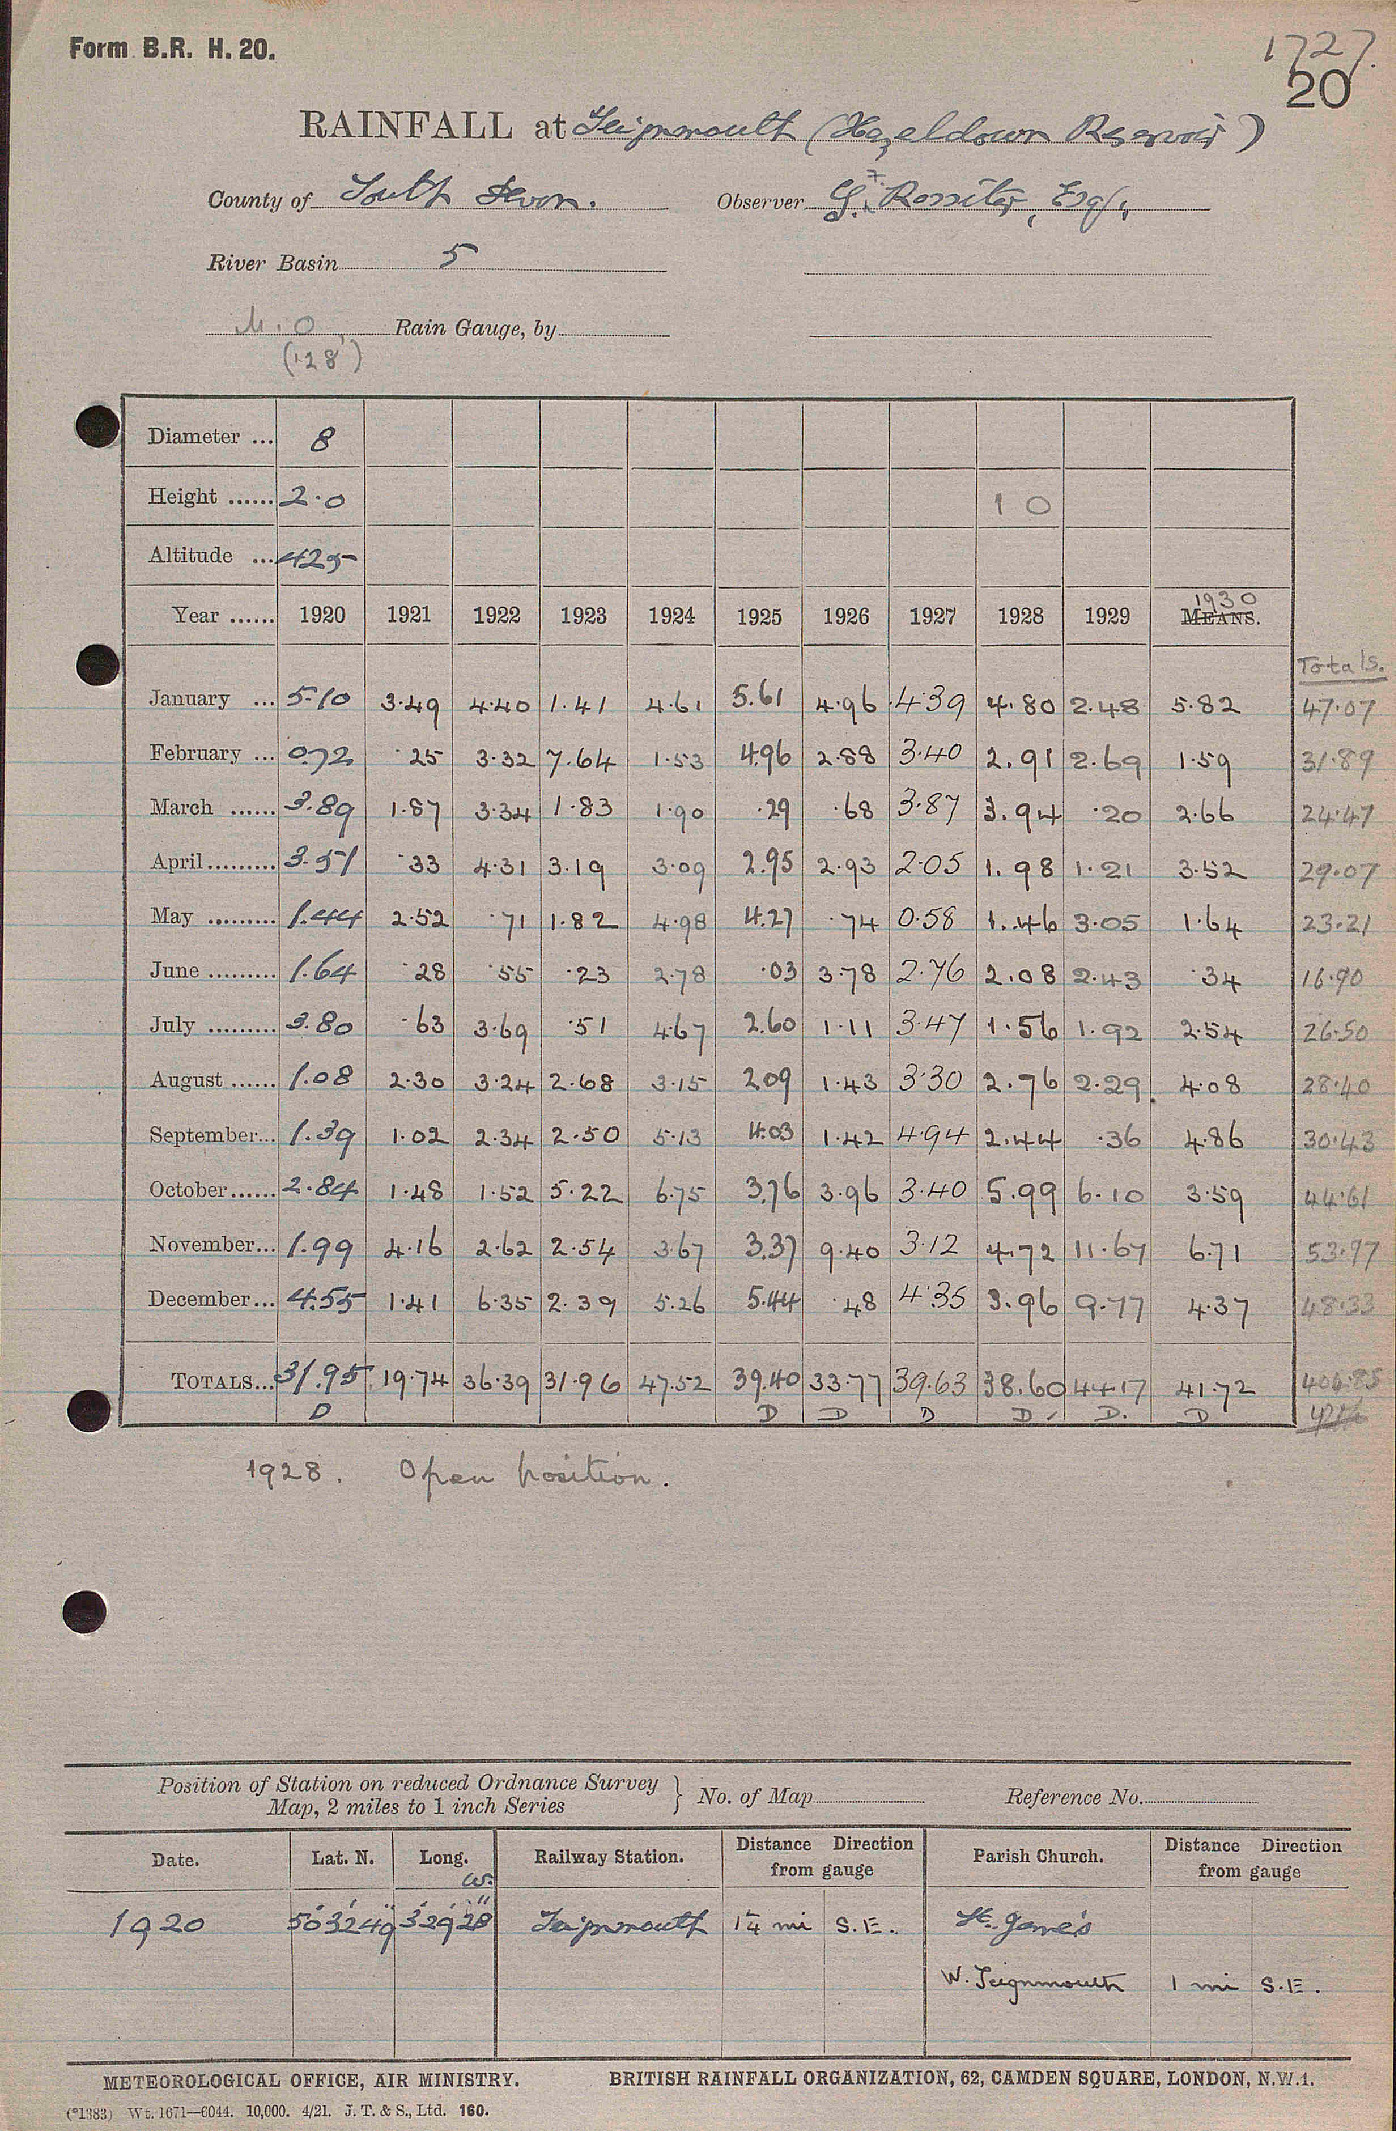 Form B.R. H. 20.
1727.
20
RAINFALL at Teignmouth (Hazeldown Reservoir)
County of South Devon. Observer G. Rossiter, Esq.,
River Basin 5
M.O Rain Gauge, by
(128')
Diameter ... 8
Height ...... 2·0 1 0
Altitude ... 425
Year ...... 1920 1921 1922 1923 1924 1925 1926 1927 1928 1929 1930 MEANS.
Totals.
January ... 5·10 3·49 4·40 1·41 4·61 5.61 4·96 4·39 4·80 2·48 5·82 47·07
February ... 0.72 ·25 3·32 7·64 1·53 4.96 2·88 3·40 2.91 2·69 1·59 31·89
March ...... 3.89 1·87 3·34 1·83 1·90 ·29 ·68 3·87 3.94 ·20 2·66 24·47
April ......... 3·51 ·33 4·31 3·19 3·09 2.95 2·93 2·05 1.98 1·21 3·52 29·07
May ......... 1.44 2·52 ·71 1·82 4·98 4.27 ·74 0·58 1.46 3·05 1·64 23·21
June ......... 1.64 ·28 ·55 ·23 2·78 ·03 3·78 2·76 2.08 2·43 ·34 16·90
July ......... 3.80 ·63 3·69 ·51 4·67 2.60 1·11 3·47 1·56 1·92 2·54 26·50
August ...... 1.08 2·30 3·24 2·68 3·15 2.09 1·43 3·30 2.76 2·29. 4·08 28·40
September... 1.39 1·02 2·34 2·50 5·13 4.03 1·42 4·94 2.44 ·36 4·86 30·43
October...... 2.84 1·48 1·52 5·22 6·75 3.76 3·96 3·40 5.99 6·10 3·59 44·61
November... 1.99 4·16 2·62 2·54 3·67 3.37 9·40 3·12 4.72 11·67 6·71 53·97
December... 4.55 1·41 6·35 2·39 5·26 5.44 ·48 4·35 3.96 9·77 4·37 48·33
TOTALS... 31.95 19·74 36·39 31·96 47·52 39.40 33·77 39·63 38.60 44·17 41·72 404·85
D D D D D D. D
1928. Open position.
Position of Station on reduced Ordnance Survey Map, 2 miles to 1 inch Series } No. of Map Reference No.
Date. Lat. N. Long. W. Railway Station. Distance Direction from gauge Parish Church. Distance Direction from gauge
1920 50°32'49" 3°29'28" Teignmouth 1¼ mi S.E. St. James
W. Teignmouth 1 mi S.E.
METEOROLOGICAL OFFICE, AIR MINISTRY. BRITISH RAINFALL ORGANIZATION, 62, CAMDEN SQUARE, LONDON, N.W.1.
(*1383) Wt. 1671—6044. 10,000. 4/21. J. T. & S., Ltd. 160.